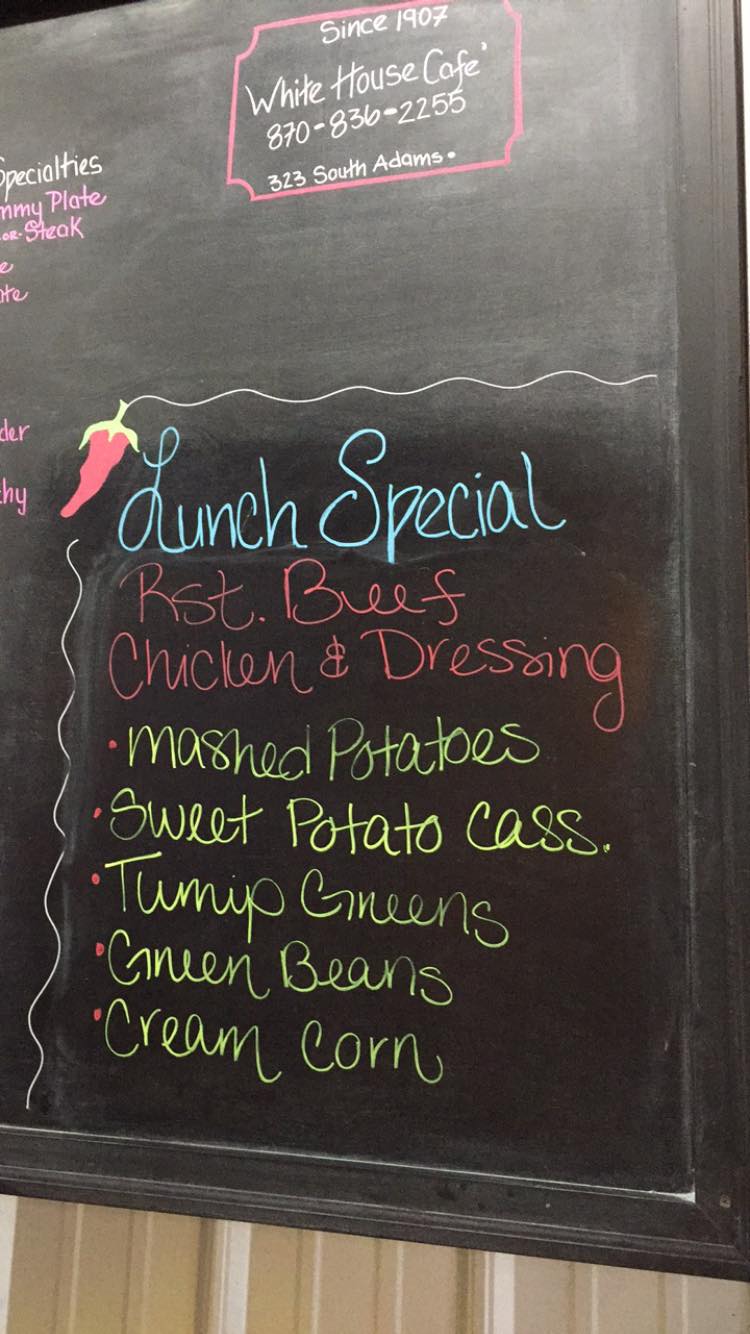 Since 1907
White House Cafe'
870-836-2255
323 South Adams.
Specialties
Plate
or Steak
Lunch Special
Rst. Beef
Chicken & Dressing
• mashed Potatoes
• Sweet Potato Cass.
• Turnip Greens
• Green Beans
• Cream Corn